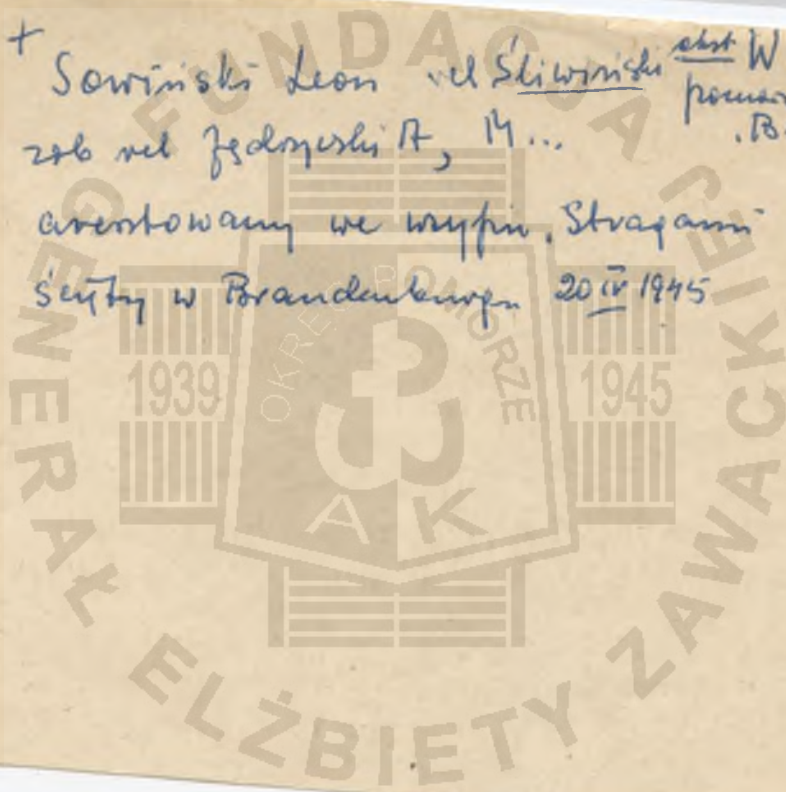 +
Sowiński Leon vel Śliwiński W
zob vel Jędrzejewski A, M...
aresztowany we
ścięty w Brandenburgu 20 IV 1945
FUNDACJA GENERAŁ ELŻBIETY ZAWACKIEJ
OKRĘG POMORZE
1939 1945
AK